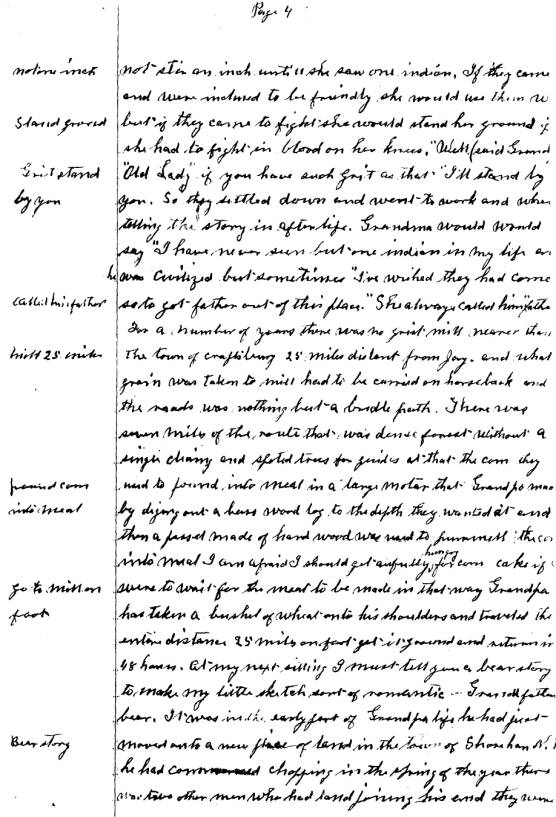 Page 4
not one inch
not stir an inch untill she saw one indian. If they came
and were inclined to be friendly she would use them w
Stand ground
but if they came to fight she would stand her ground if
she had to fight in blood on her knees." Well (said Grand
Grit stand
"Old Lady" if you have such grit as that "I'll stand by
by you
you. So they settled down and went to work and when
telling the story in after life. Grandma would would
say "I have never seen but one indian in my life an
he was civilized but sometimes "I've wished they had come
called him father
so to got father out of this place." She always called him "fathe
For a number of years there was no grist mill nearer than
mill 25 miles
the town of craftsbury 25 miles distant from Jay. and what
grain was taken to mill had to be carried on horseback and
the roads was nothing but a bridle path. There was
seven miles of the route that was dense forest without a
single clearing and spoted trees for guides at that the corn they
pound corn
used to pound into meal in a large motar that Grandpa mad
into meal
by diging out a bass wood log to the depth they wanted it and
then a pessel made of hard wood was used to pummell the cor
into meal I am afraid I should get awfully hungry for corn cake if
go to mill on
were to wait for the meal to be made in that way Grandpa
foot
has taken a bushel of wheat onto his shoulders and traveled the
entire distance 25 miles on foot get it ground and return in
48 hours. At my next sitting I must tell you a bear story
to make my little sketch sort of romantic - Grandfather
bear. It was in the early part of Grandpa life he had just
Bear story
moved onto a new place of land in the town of N.
he had chopping in the spring of the year there
was two other men who had land joining his and they were